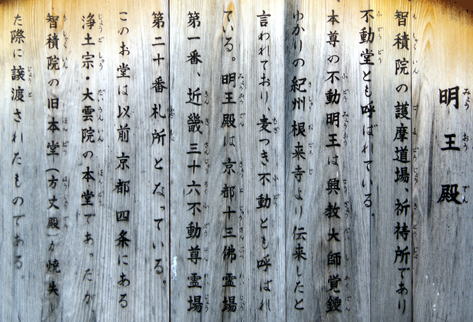 明王殿
智積院の護摩道場、祈祷所であり
不動堂とも呼ばれている。
本尊の不動明王は、興教大師覚鑁
ゆかりの紀州根来寺より伝来したと
言われており、麦つき不動とも呼ばれ
ている。明王殿は京都十三佛霊場
第一番、近畿三十六不動尊霊場
第二十番札所となっている。
このお堂は以前、京都四条にある
浄土宗・大雲院の本堂であったが
智積院の旧本堂（方丈殿）が焼失し
た際に譲渡されたものである。